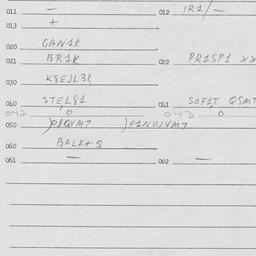 011 — 012 IR1/—
013 +
020 GAN1K
021 BR1K 022 PR1SP1 XX
030
040 STEL81 041 SOF1T QSMT
042 0 043 0
050
060 BALK+8
061 — 062 —